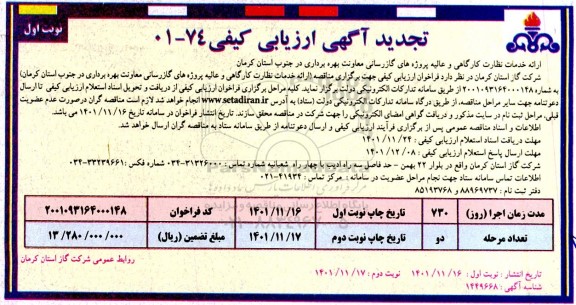 نوبت اول
تجدید آگهی ارزیابی کیفی ۷۴-۰۱
ارائه خدمات نظارت کارگاهی و عالیه پروژه های گازرسانی معاونت بهره برداری در جنوب استان کرمان
شرکت گاز استان کرمان در نظر دارد فراخوان ارزیابی کیفی جهت برگزاری مناقصه (ارائه خدمات نظارت کارگاهی و عالیه پروژه های گازرسانی معاونت بهره برداری در جنوب استان کرمان)
به شماره ۲۰۰۱۰۹۳۱۶۴۰۰۰۱۴۸ از طریق سامانه تدارکات الکترونیکی دولت برگزار نماید. کلیه مراحل برگزاری فراخوان ارزیابی کیفی از دریافت و تحویل اسناد استعلام ارزیابی کیفی تا ارسال
دعوتنامه جهت سایر مراحل مناقصه، از طریق درگاه سامانه تدارکات الکترونیکی دولت (ستاد) به آدرس www.setadiran.ir انجام خواهد شد لازم است مناقصه گران درصورت عدم عضویت
قبلی، مراحل ثبت نام در سایت مذکور و دریافت گواهی امضای الکترونیکی را جهت شرکت در مناقصه محقق سازند. تاریخ انتشار فراخوان در سامانه تاریخ ۱۴۰۱/۱۱/۱۶ می باشد.
اطلاعات و اسناد مناقصه عمومی پس از برگزاری فرآیند ارزیابی کیفی و ارسال دعوتنامه از طریق سامانه ستاد به مناقصه گران ارسال خواهد شد.
مهلت دریافت اسناد استعلام ارزیابی کیفی: ۱۴۰۱/۱۱/۲۴
مهلت ارسال پاسخ استعلام ارزیابی کیفی: ۱۴۰۱/۱۲/۰۸
شرکت گاز استان کرمان واقع در بلوار ۲۲ بهمن - حد فاصل سه راه ادیب با چهار راه شعبانیه شماره تماس: ۳۱۳۲۶۰۰۰-۰۳۴ شماره فکس: ۳۳۲۳۹۶۶۱-۰۳۴
اطلاعات تماس سامانه ستاد جهت انجام مراحل عضویت در سامانه: مرکز تماس: ۴۱۹۳۴-۰۲۱
دفتر ثبت نام: ۸۸۹۶۹۷۳۷ و ۸۵۱۹۳۷۶۸
مدت زمان اجرا (روز) ۷۳۰ تاریخ چاپ نوبت اول ۱۴۰۱/۱۱/۱۶ کد فراخوان ۲۰۰۱۰۹۳۱۶۴۰۰۰۱۴۸
تعداد مرحله دو تاریخ چاپ نوبت دوم ۱۴۰۱/۱۱/۱۷ مبلغ تضمین (ریال) ۱۳/۲۸۰/۰۰۰/۰۰۰
روابط عمومی شرکت گاز استان کرمان
تاریخ انتشار: نوبت اول: ۱۴۰۱/۱۱/۱۶ نوبت دوم: ۱۴۰۱/۱۱/۱۷
شناسه آگهی: ۱۴۴۹۶۶۸